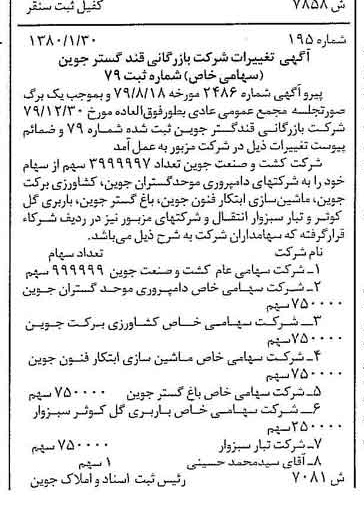 ش ۷۸۵۸ کفیل ثبت سنقر
شماره ۱۹۵ ۱۳۸۰/۱/۳۰
آگهی تغییرات شرکت بازرگانی قند گستر جوین
(سهامی خاص) شماره ثبت ۷۹
پیرو آگهی شماره ۲۴۸۶ مورخه ۷۹/۸/۱۸ و بموجب یک برگ
صورتجلسه مجمع عمومی عادی بطور فوق‌العاده مورخ ۷۹/۱۲/۳۰
شرکت بازرگانی قندگستر جوین ثبت شده شماره ۷۹ و ضمائم
پیوست تغییرات ذیل در شرکت مزبور به عمل آمد
شرکت کشت و صنعت جوین تعداد ۳۹۹۹۹۹۷ سهم از سهام
خود را به شرکتهای دامپروری موحدگستران جوین، کشاورزی برکت
جوین، ماشین‌سازی ابتکار فنون جوین، باغ گستر جوین، باربری گل
کوثر و تبار سبزوار انتقال و شرکتهای مزبور نیز در ردیف شرکاء
قرار گرفته که سهامداران شرکت به شرح ذیل می‌باشد.
نام شرکت تعداد سهام
۱ـ شرکت سهامی عام کشت و صنعت جوین ۹۹۹۹۹۹ سهم
۲ـ شرکت سهامی خاص دامپروری موحد گستران جوین
۷۵۰۰۰۰ سهم
۳ـ شرکت سهامی خاص کشاورزی برکت جوین
۷۵۰۰۰۰ سهم
۴ـ شرکت سهامی خاص ماشین سازی ابتکار فنون جوین
۷۵۰۰۰۰ سهم
۵ـ شرکت سهامی خاص باغ گستر جوین ۷۵۰۰۰۰ سهم
۶ـ شرکت سهامی خاص باربری گل کوثر سبزوار
۲۵۰۰۰۰ سهم
۷ـ شرکت تبار سبزوار ۷۵۰۰۰۰ سهم
۸ـ آقای سیدمحمد حسینی ۱ سهم
ش ۷۰۸۱ رئیس ثبت اسناد و املاک جوین